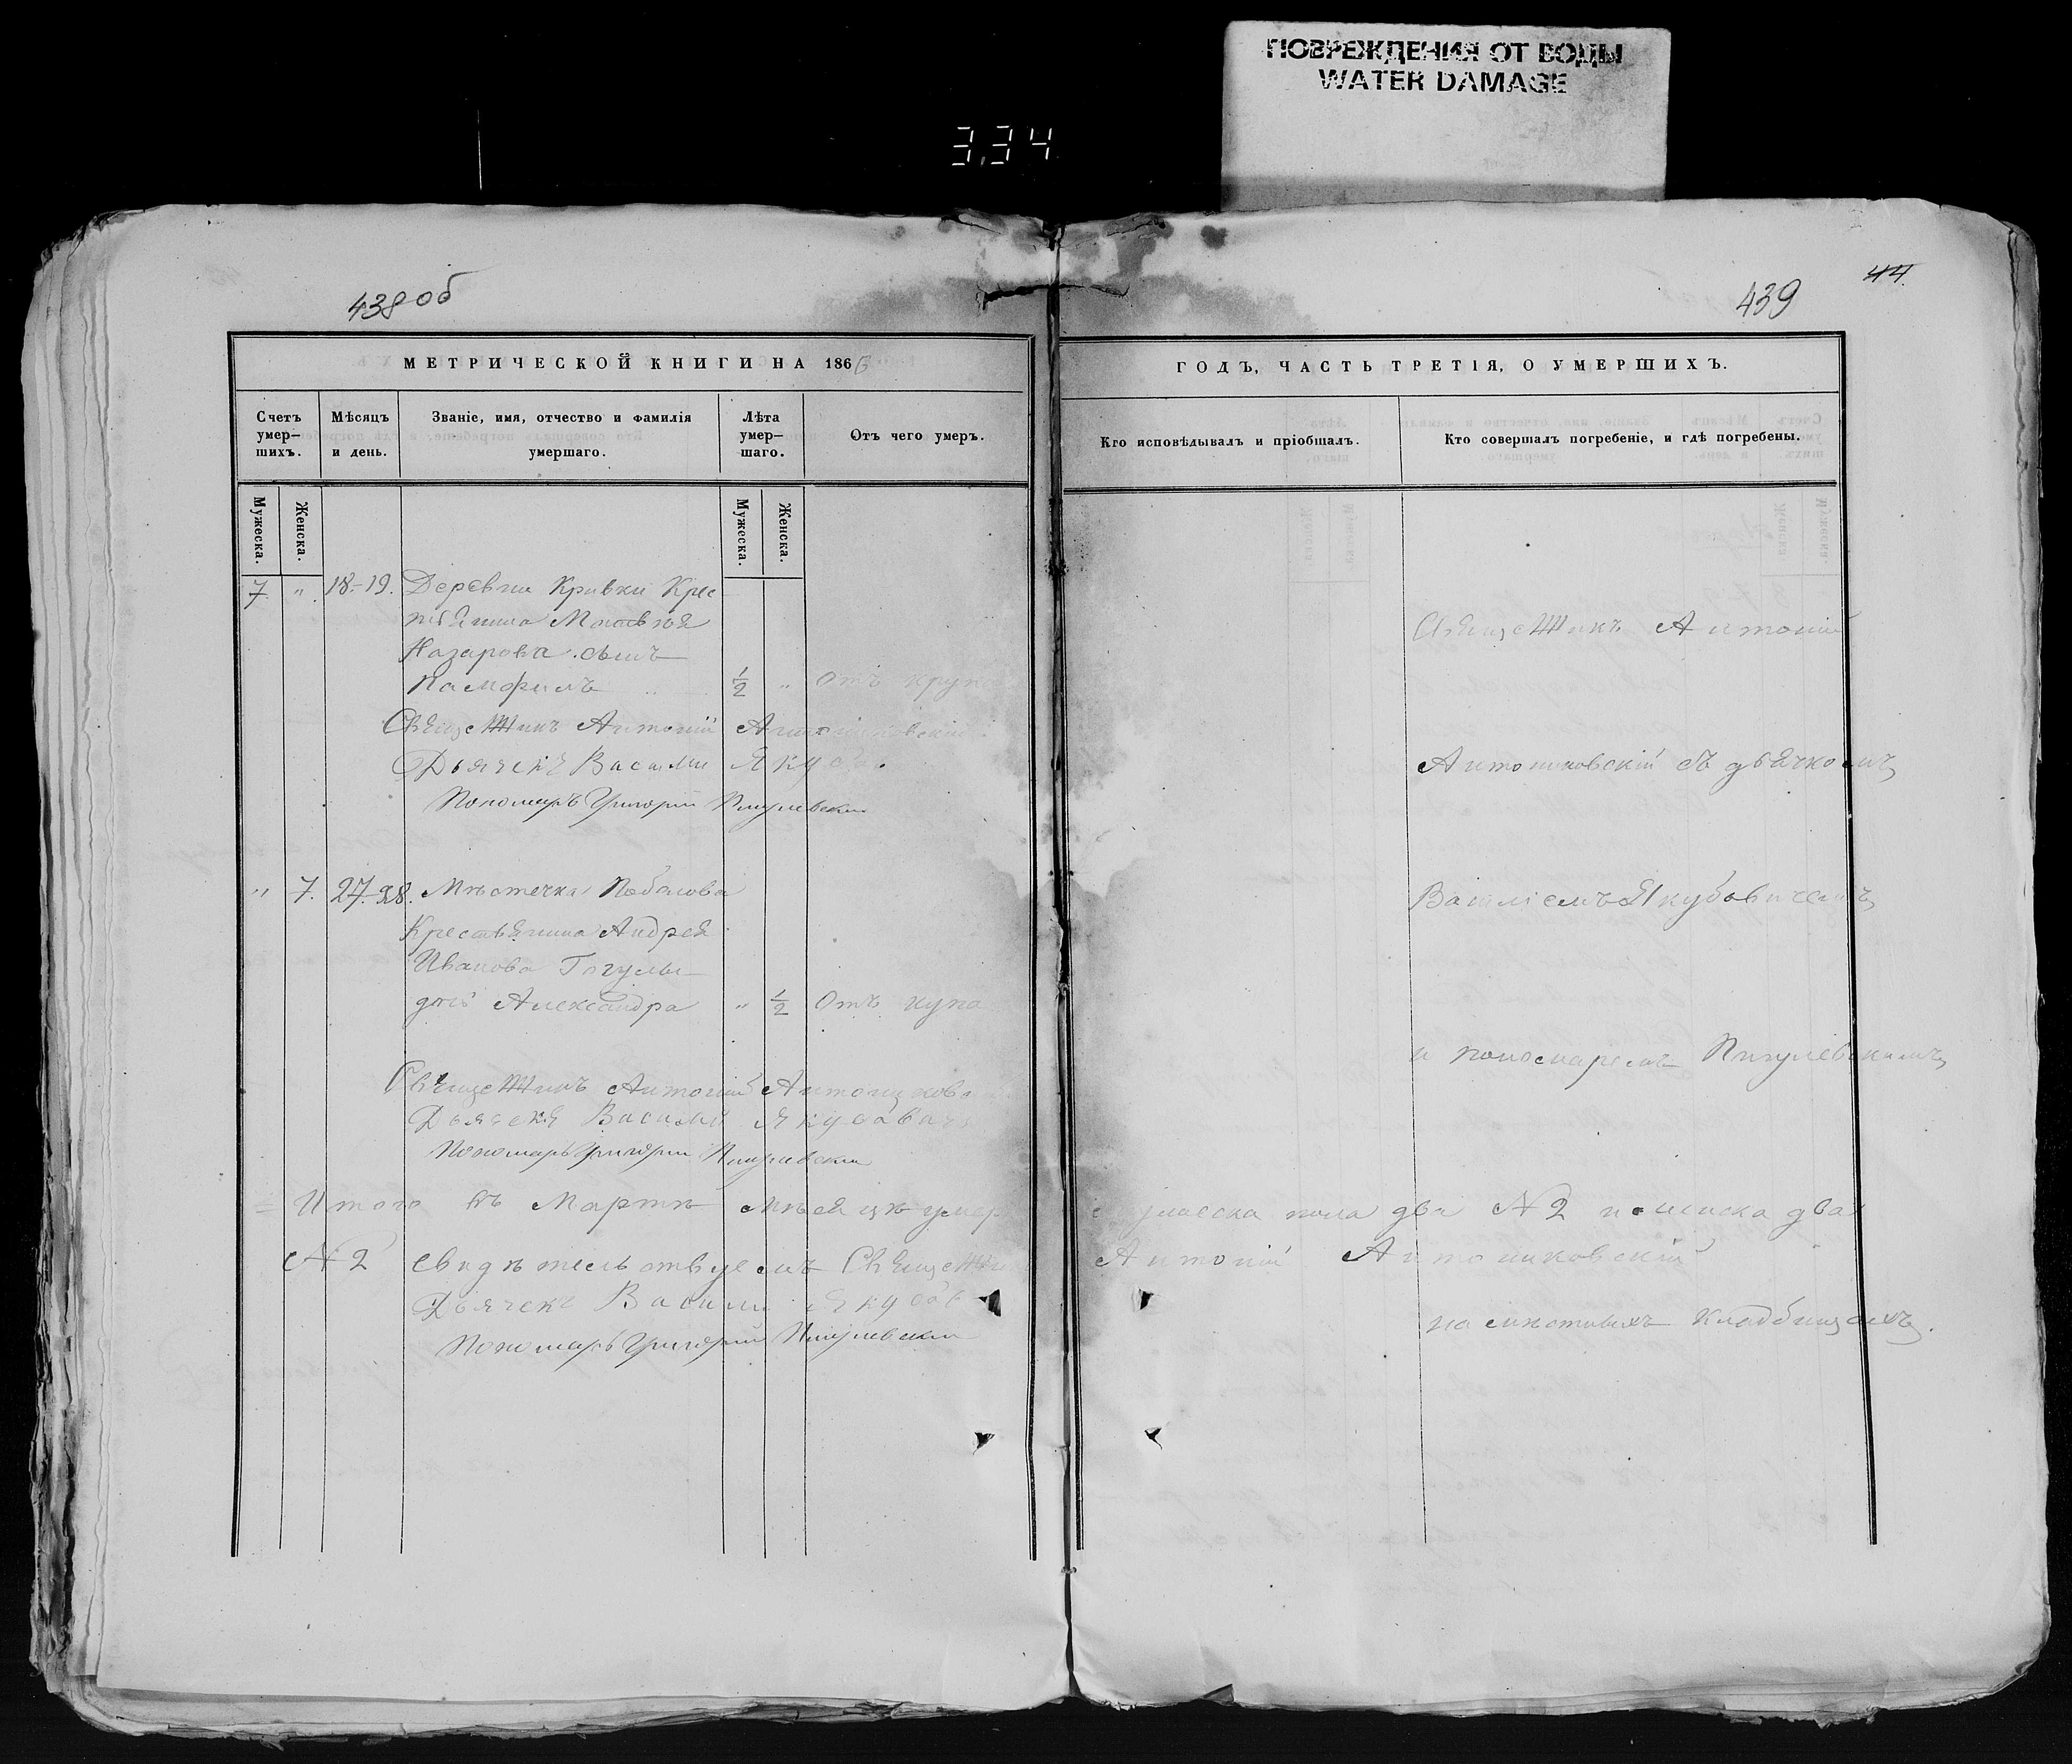 ПОВРЕЖДЕНИЯ ОТ ВОДЫ
WATER DAMAGE
3.34
438 об
439
44
МЕТРИЧЕСКОЙ КНИГИ НА 186
ГОДЪ, ЧАСТЬ ТРЕТІЯ, О УМЕРШИХЪ.
Счетъ умер-шихъ.
Мѣсяцъ и день.
Званіе, имя, отчество и фамилія умершаго.
Лѣта умер-шаго.
Отъ чего умеръ.
Кто исповѣдывалъ и пріобщалъ.
Кто совершалъ погребеніе, и гдѣ погребены.
Мужеска.
Женска.
Мужеска.
Женска.
7. " 18-19. Деревни Кривки Крес
тьянина Матвѣя
Назарова сынъ
Памфилъ 1/2 " Отъ круп
Священникъ Антоній
Дьячекъ Василій
Пономарь Григорій Пигулевскій
" 7. 27-28. Мѣстечка
Крестьянина Андрея
Иванова
дочь Александра " 1/2 Отъ
Священникъ Антоній
Дьячекъ Василій Якубовичъ
Пономарь Григорій Пигулевскій
Итого въ Мартѣ мѣсяцѣ умер
мужеска пола два № 2 и женска два
№ 2 Свидѣтельствуемъ Священ
Антоній
Дьячекъ Василій
Пономарь Григорій Пигулевскій
Священникъ Антоній
съ дьячкомъ
Василіемъ Якубовичемъ
и пономаремъ Пигулевскимъ
на кладбищахъ.